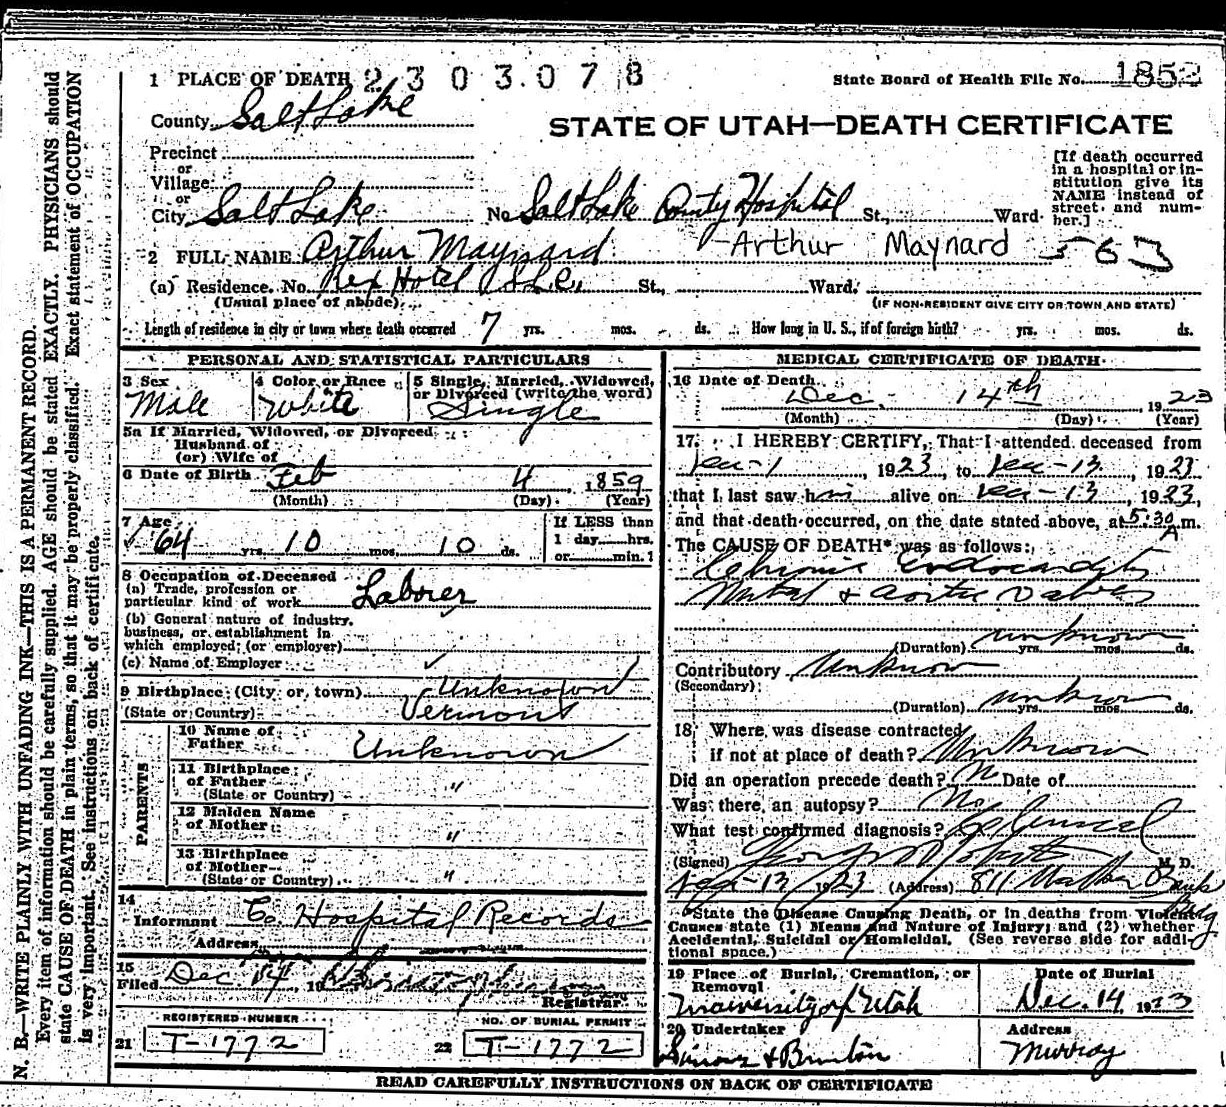 1 PLACE OF DEATH 2303078
State Board of Health File No. 1852
County Salt Lake
STATE OF UTAH—DEATH CERTIFICATE
Precinct
or
Village
or
City Salt Lake No Salt Lake County Hospital St., Ward
[If death occurred in a hospital or in-
stitution give its
NAME instead of
street and num-
ber.]
2 FULL NAME Arthur Maynard - Arthur Maynard 563
(a) Residence. No. Rex Hotel S.L.C. St., Ward.
(Usual place of abode) (IF NON-RESIDENT GIVE CITY OR TOWN AND STATE)
Length of residence in city or town where death occurred 7 yrs. mos. ds. How long in U. S., if of foreign birth? yrs. mos. ds.
PERSONAL AND STATISTICAL PARTICULARS
3 Sex
Male
4 Color or Race
White
5 Single, Married, Widowed,
or Divorced (write the word)
Single
5a If Married, Widowed, or Divorced
Husband of
(or) Wife of
6 Date of Birth Feb 4 1859
(Month) (Day) (Year)
7 Age
64 yrs. 10 mos. 10 ds.
If LESS than
1 day hrs.
or min.?
8 Occupation of Deceased
(a) Trade, profession or
particular kind of work Laborer
(b) General nature of industry,
business, or establishment in
which employed (or employer)
(c) Name of Employer
9 Birthplace (City or town) Unknown
(State or Country) Vermont
PARENTS
10 Name of
Father Unknown
11 Birthplace
of Father "
(State or Country)
12 Maiden Name
of Mother "
13 Birthplace
of Mother "
(State or Country)
14
Informant Co. Hospital Records
Address
15
Filed Dec 14, 19
Registrar
REGISTERED NUMBER
21 T-1772
NO. OF BURIAL PERMIT
22 T-1772
MEDICAL CERTIFICATE OF DEATH
16 Date of Death Dec. 14th, 1923
(Month) (Day) (Year)
17. I HEREBY CERTIFY, That I attended deceased from
Dec-1, 1923, to Dec-13, 1923
that I last saw him alive on Dec-13, 1923,
and that death occurred, on the date stated above, at 5:30 A m.
The CAUSE OF DEATH* was as follows:
Chronic Endocarditis
Mitral & Aortic Valves
(Duration) unknown yrs. mos. ds.
Contributory Unknown
(Secondary)
(Duration) unknown yrs. mos. ds.
18 Where was disease contracted
if not at place of death? Unknown
Did an operation precede death? N Date of
Was there an autopsy? No
What test confirmed diagnosis?
(Signed) M. D.
1923 (Address) 811 Walker Bank
Bldg
*State the Disease Causing Death, or in deaths from Violent
Causes state (1) Means and Nature of Injury; and (2) whether
Accidental, Suicidal or Homicidal. (See reverse side for addi-
tional space.)
19 Place of Burial, Cremation, or
Removal
University of Utah
Date of Burial
Dec. 14, 1923
20 Undertaker
Simons & Brunton
Address
Murray
READ CAREFULLY INSTRUCTIONS ON BACK OF CERTIFICATE
N. B.—WRITE PLAINLY WITH UNFADING INK—THIS IS A PERMANENT RECORD.
Every item of information should be carefully supplied. AGE should be stated EXACTLY. PHYSICIANS should
state CAUSE OF DEATH in plain terms, so that it may be properly classified. Exact statement of OCCUPATION
is very important. See instructions on back of certificate.